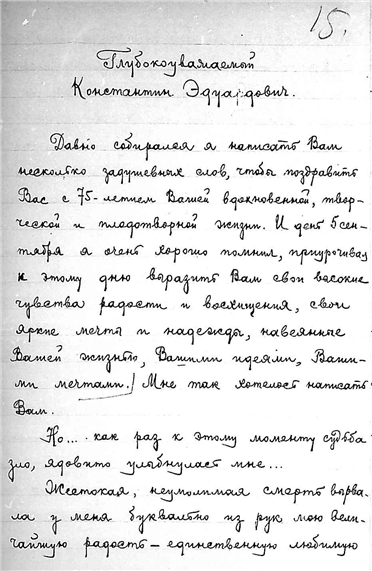 15.
Глубокоуважаемый
Константин Эдуардович.
Давно собирался я написать Вам
несколько задушевных слов, чтобы поздравить
Вас с 75-летием Вашей вдохновенной, твор-
ческой и плодотворной жизни. И день 5 сен-
тября я очень хорошо помнил, приурочивая
к этому дню выразить Вам свои высокие
чувства радости и восхищения, свои
яркие мечты и надежды, навеянные
Вашей жизнью, Вашими идеями, Ваши-
ми мечтами. Мне так хотелось написать
Вам.
Но... как раз к этому моменту судьба
зло, ядовито улыбнулась мне...
Жестокая, неумолимая смерть вырва-
ла у меня буквально из рук мою вели-
чайшую радость – единственную любимую